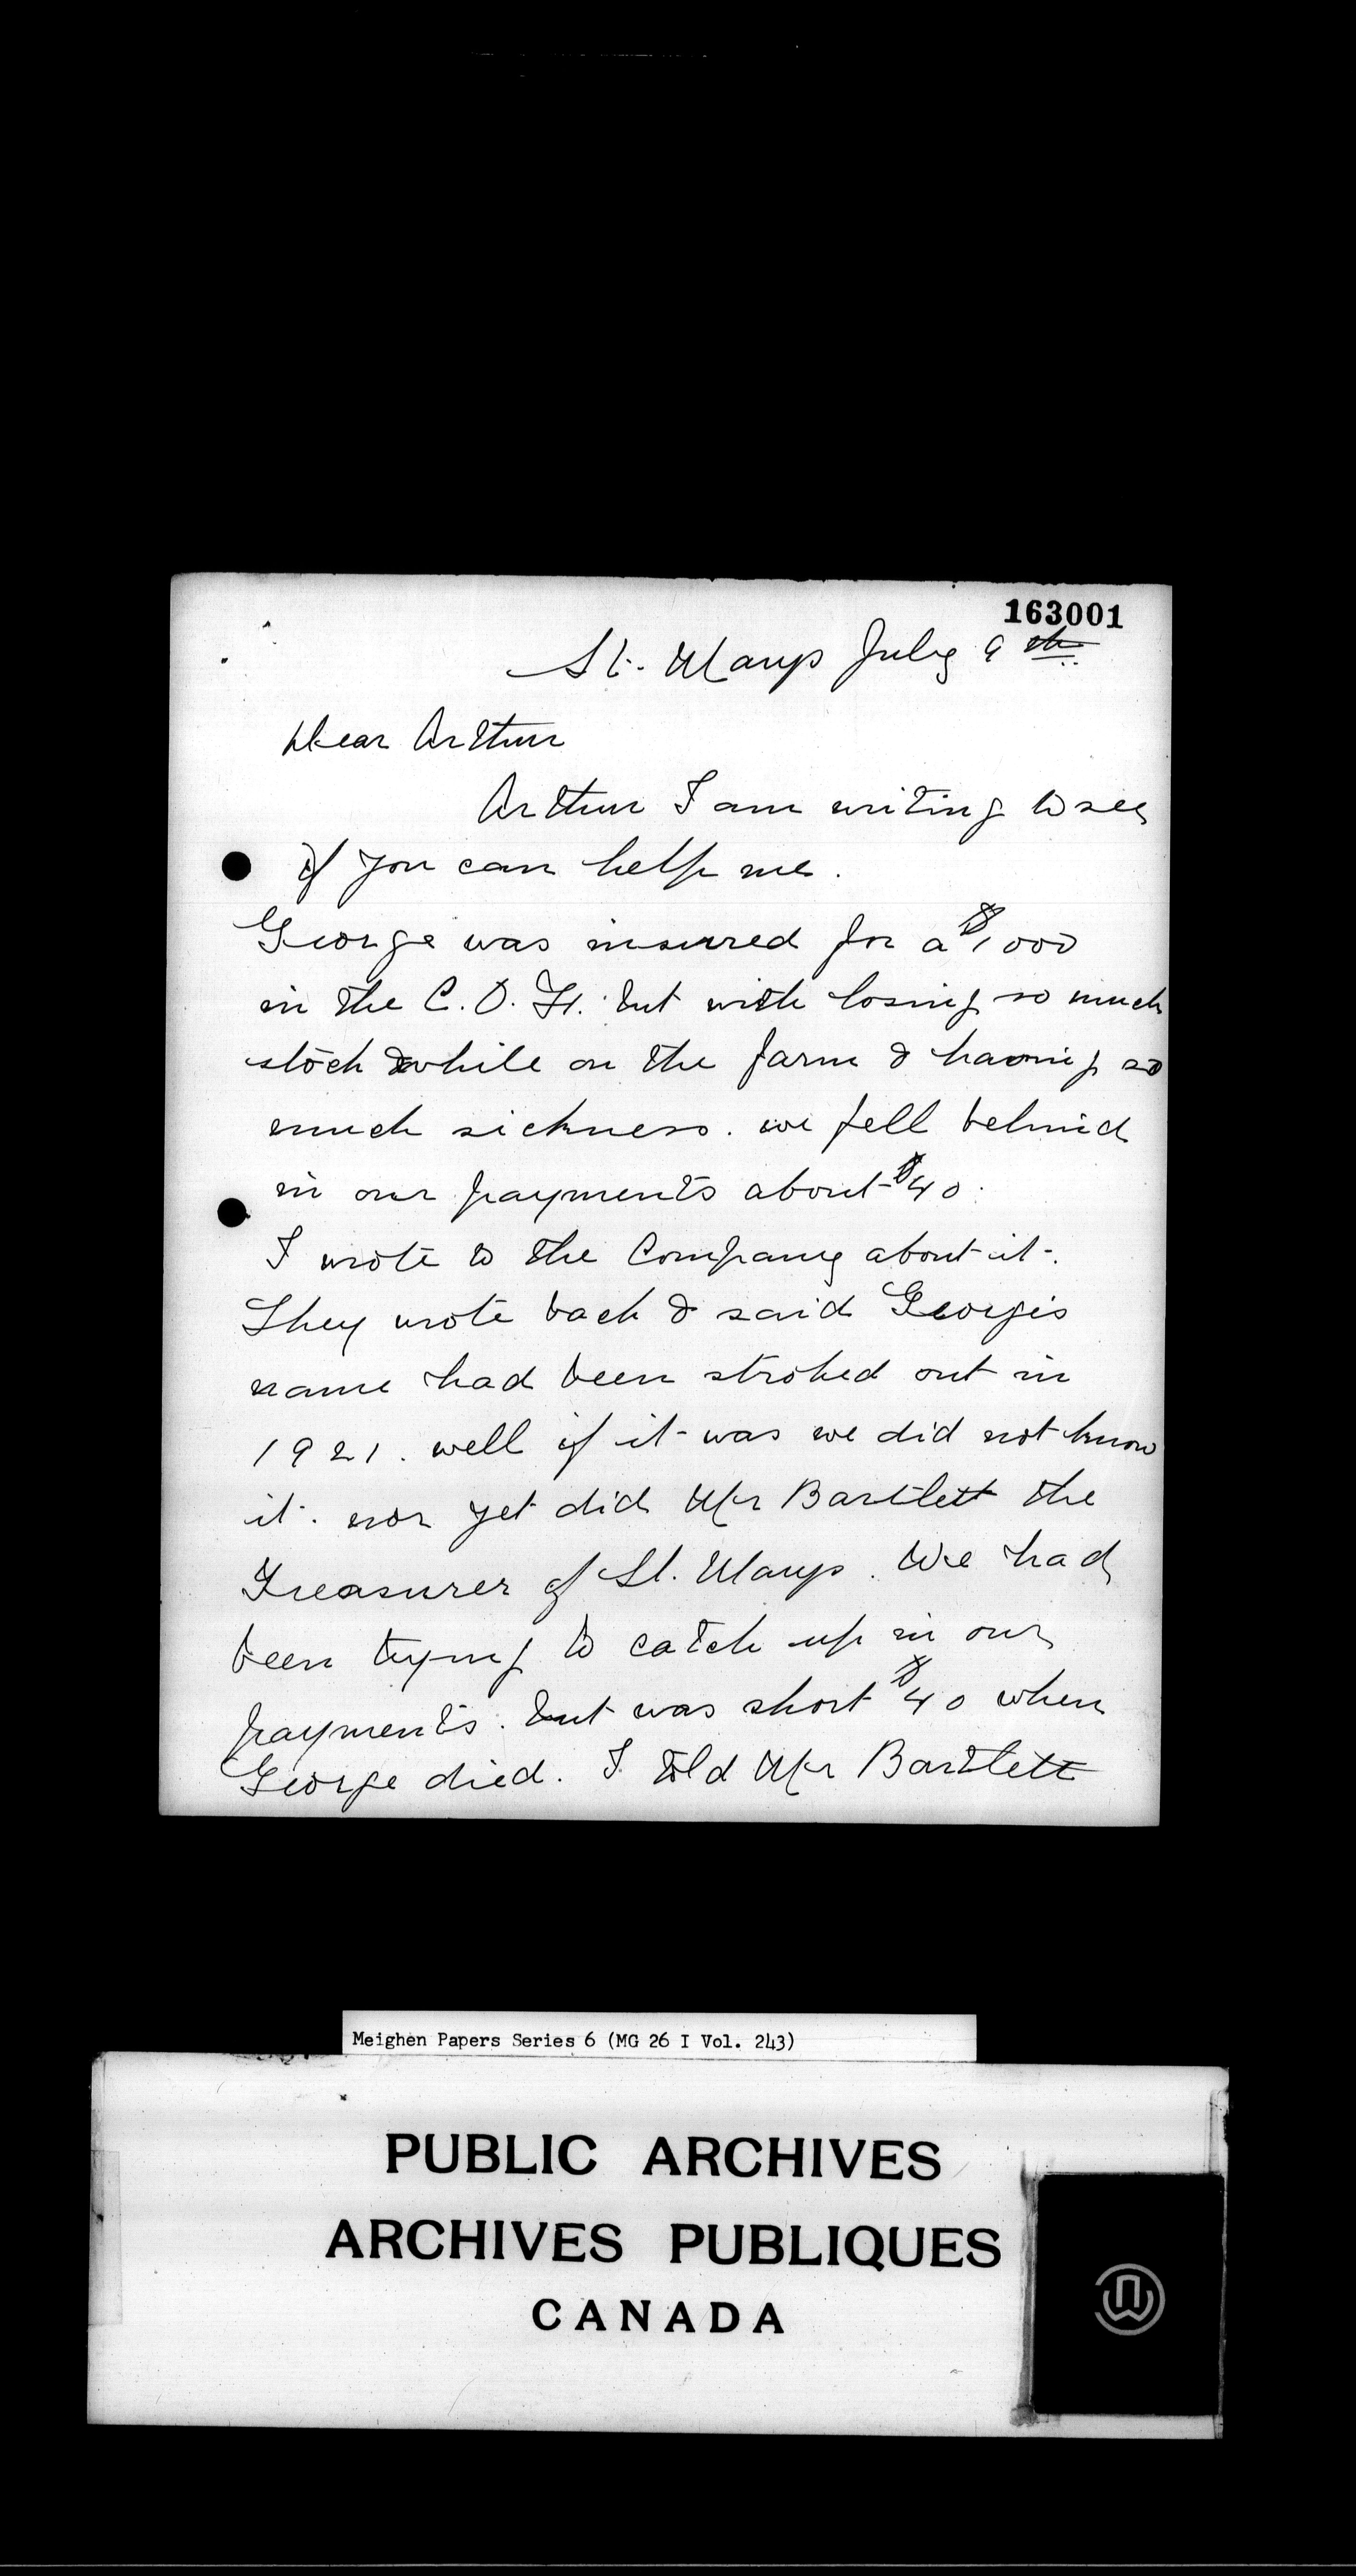 163001
St. Marys July 9th
Dear Arthur
Arthur I am writing to see
if you can help me.
George was insured for a $1000
in the C. O. F. but with losing so much
stock while on the farm & having so
much sickness. we fell behind
in our payments about $40.
I wrote to the Company about it.
They wrote back & said Georges
name had been stroked out in
1921. well if it was we did not know
it. nor yet did Mr Bartlett the
Treasurer of St. Marys. We had
been trying to catch up in our
payments. but was short $40 when
George died. I told Mr Bartlett
Meighen Papers Series 6 (MG 26 I Vol. 243)
PUBLIC ARCHIVES
ARCHIVES PUBLIQUES
CANADA